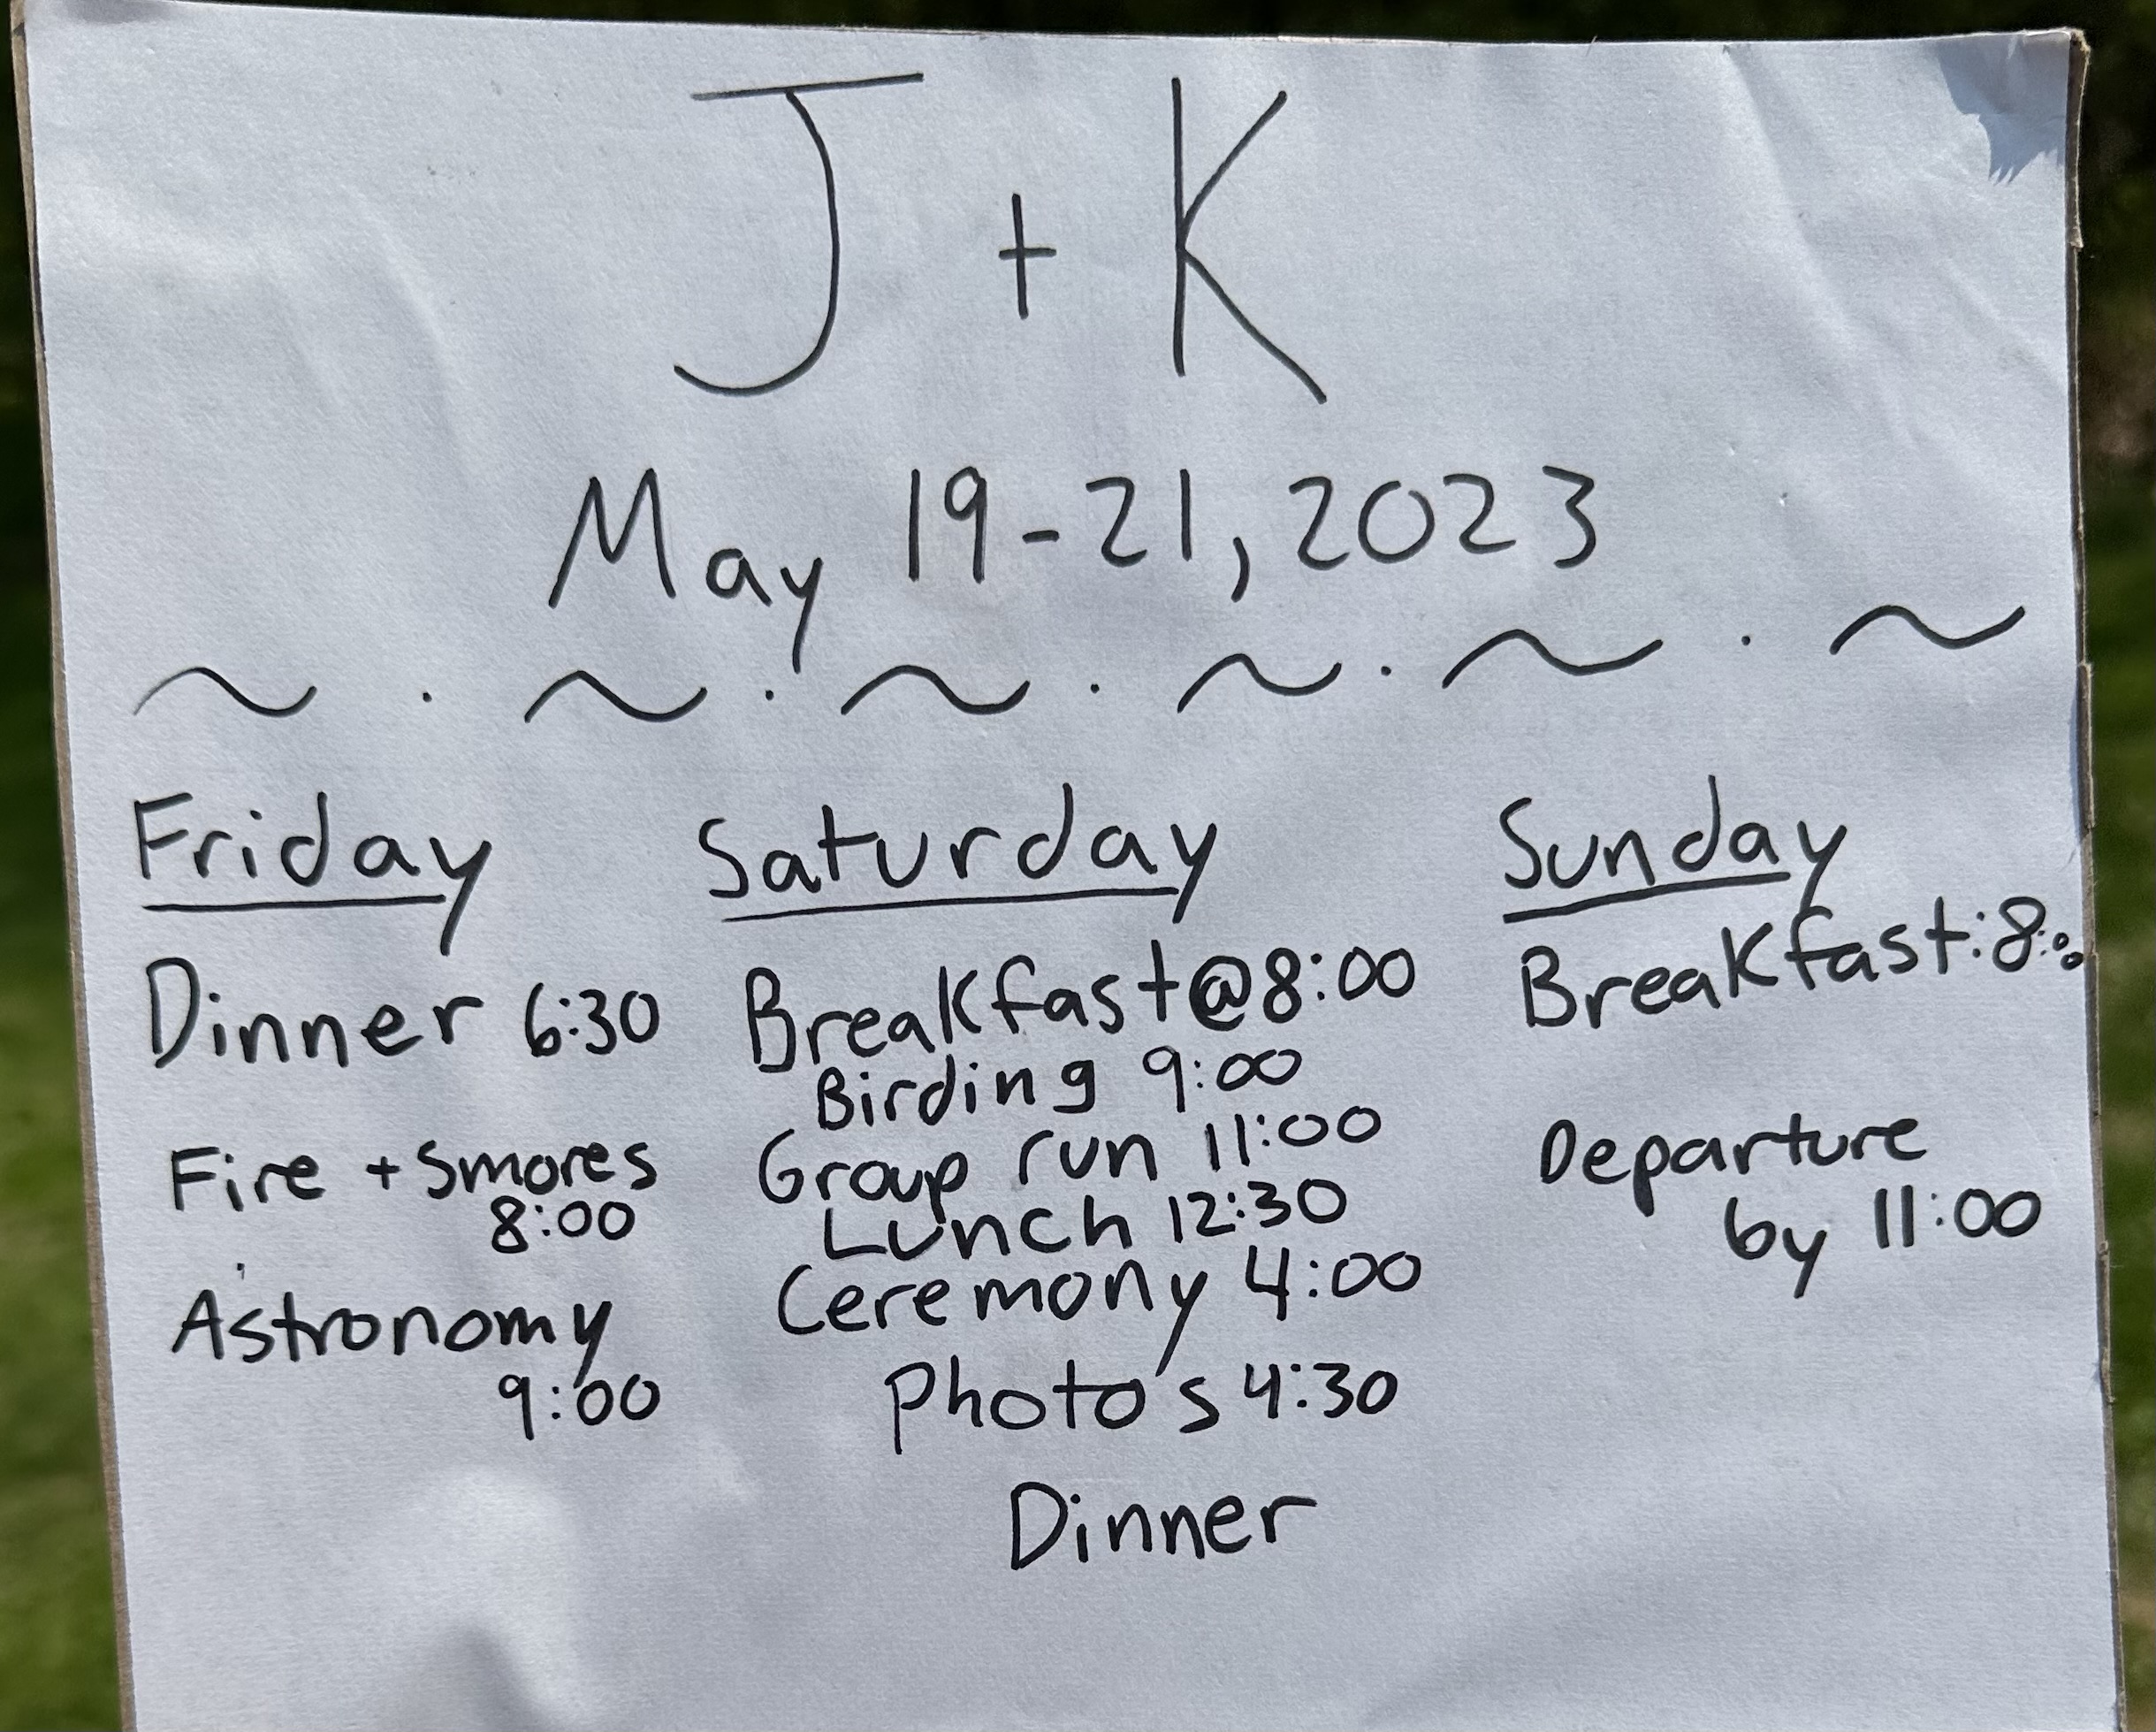 J + K
May 19-21, 2023
~ . ~ . ~ . ~ . ~ . ~
Friday
Dinner 6:30
Fire + Smores
8:00
Astronomy
9:00
Saturday
Breakfast@8:00
Birding 9:00
Group run 11:00
Lunch 12:30
Ceremony 4:00
Photo's 4:30
Dinner
Sunday
Breakfast:8:00
Departure
by 11:00